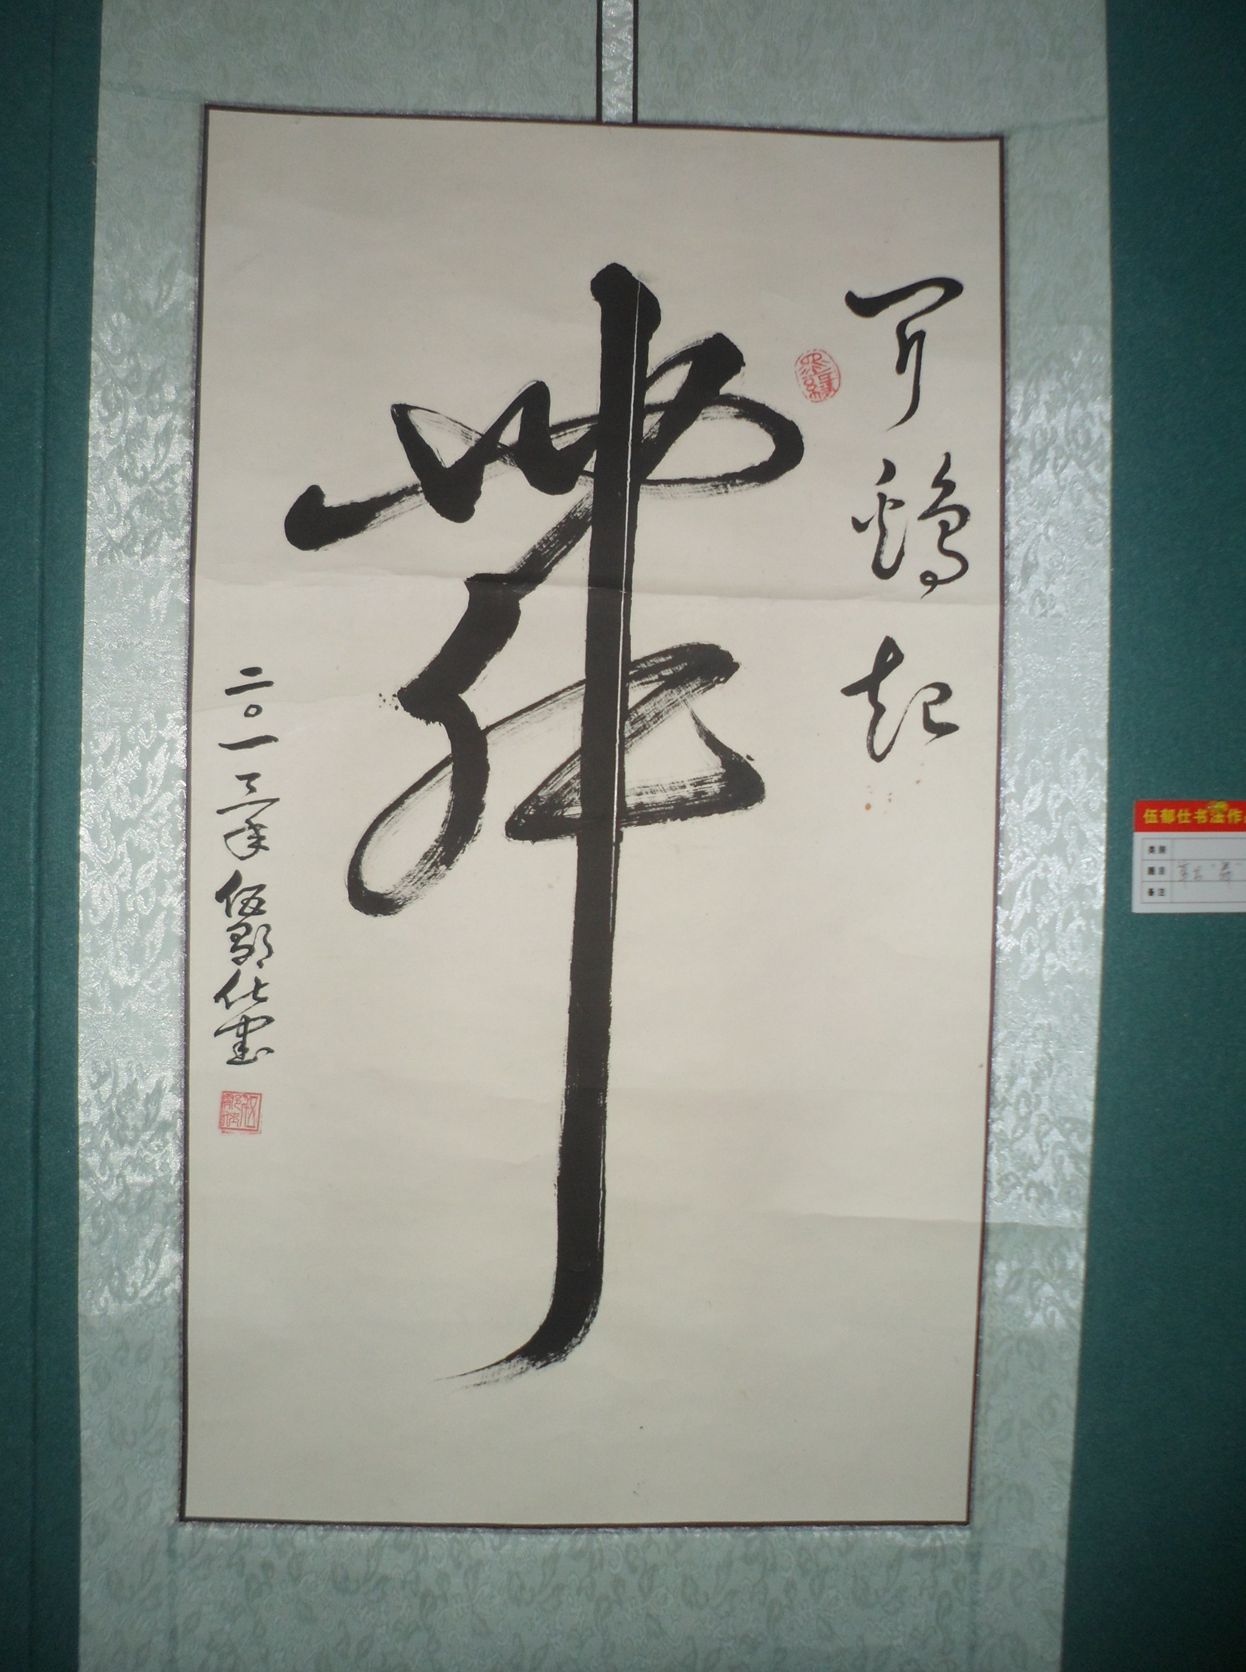 闻鸡起
舞
二〇一三年伍郁仕书
伍郁仕书法作
类别
题目
备注